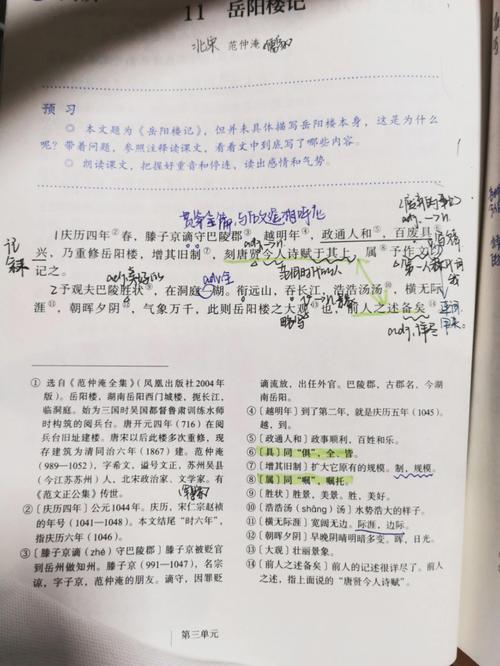 11 岳阳楼记
北宋 范仲淹
预 习
◎ 本文题为《岳阳楼记》，但并未具体描写岳阳楼本身，这是为什么
呢？带着问题，参照注释读课文，看看文中到底写了哪些内容。
◎ 朗读课文，把握好重音和停连，读出感情和气势。
1庆历四年②春，滕子京谪守巴陵郡③。越明年④，政通人和⑤，百废具⑥
兴，乃重修岳阳楼，增其旧制⑦，刻唐贤今人诗赋于其上，属⑧予作文以
记之。
2予观夫巴陵胜状⑨，在洞庭一湖。衔远山，吞长江，浩浩汤汤⑩，横无际
涯⑪，朝晖夕阴⑫，气象万千，此则岳阳楼之大观⑬也，前人之述备矣⑭。
① 选自《范仲淹全集》（凤凰出版社2004年
版）。岳阳楼，湖南岳阳西门城楼，扼长江，
临洞庭。始为三国时吴国都督鲁肃训练水师
时构筑的阅兵台。唐开元四年（716）在阅
兵台旧址建楼。唐宋以后此楼多次重修，现
存建筑为清同治六年（1867）建。范仲淹
（989—1052），字希文，谥号文正，苏州吴县
（今江苏苏州）人，北宋政治家、文学家。有
《范文正公集》传世。
②〔庆历四年〕公元1044年。庆历，宋仁宗赵祯
的年号（1041—1048）。本文结尾“时六年”，
指庆历六年（1046）。
③〔滕子京谪（zhé）守巴陵郡〕滕子京被贬官
到岳州做知州。滕子京（991—1047），名宗
谅，字子京，范仲淹的朋友。谪守，因罪贬
谪流放，出任外官。巴陵郡，古郡名，今湖
南岳阳。
④〔越明年〕到了第二年，就是庆历五年（1045）。
越，到。
⑤〔政通人和〕政事顺利，百姓和乐。
⑥〔具〕同“俱”，全、皆。
⑦〔增其旧制〕扩大它原有的规模。制，规模。
⑧〔属〕同“嘱”，嘱托。
⑨〔胜状〕胜景，美景。胜，美好。
⑩〔浩浩汤汤（shāng）〕水势浩大的样子。
⑪〔横无际涯〕宽阔无边。际涯，边际。
⑫〔朝晖夕阴〕早晚阴晴明暗多变。晖，日光。
⑬〔大观〕壮丽景象。
⑭〔前人之述备矣〕前人的记述很详尽了。前人
之述，指上面说的“唐贤今人诗赋”。
第三单元